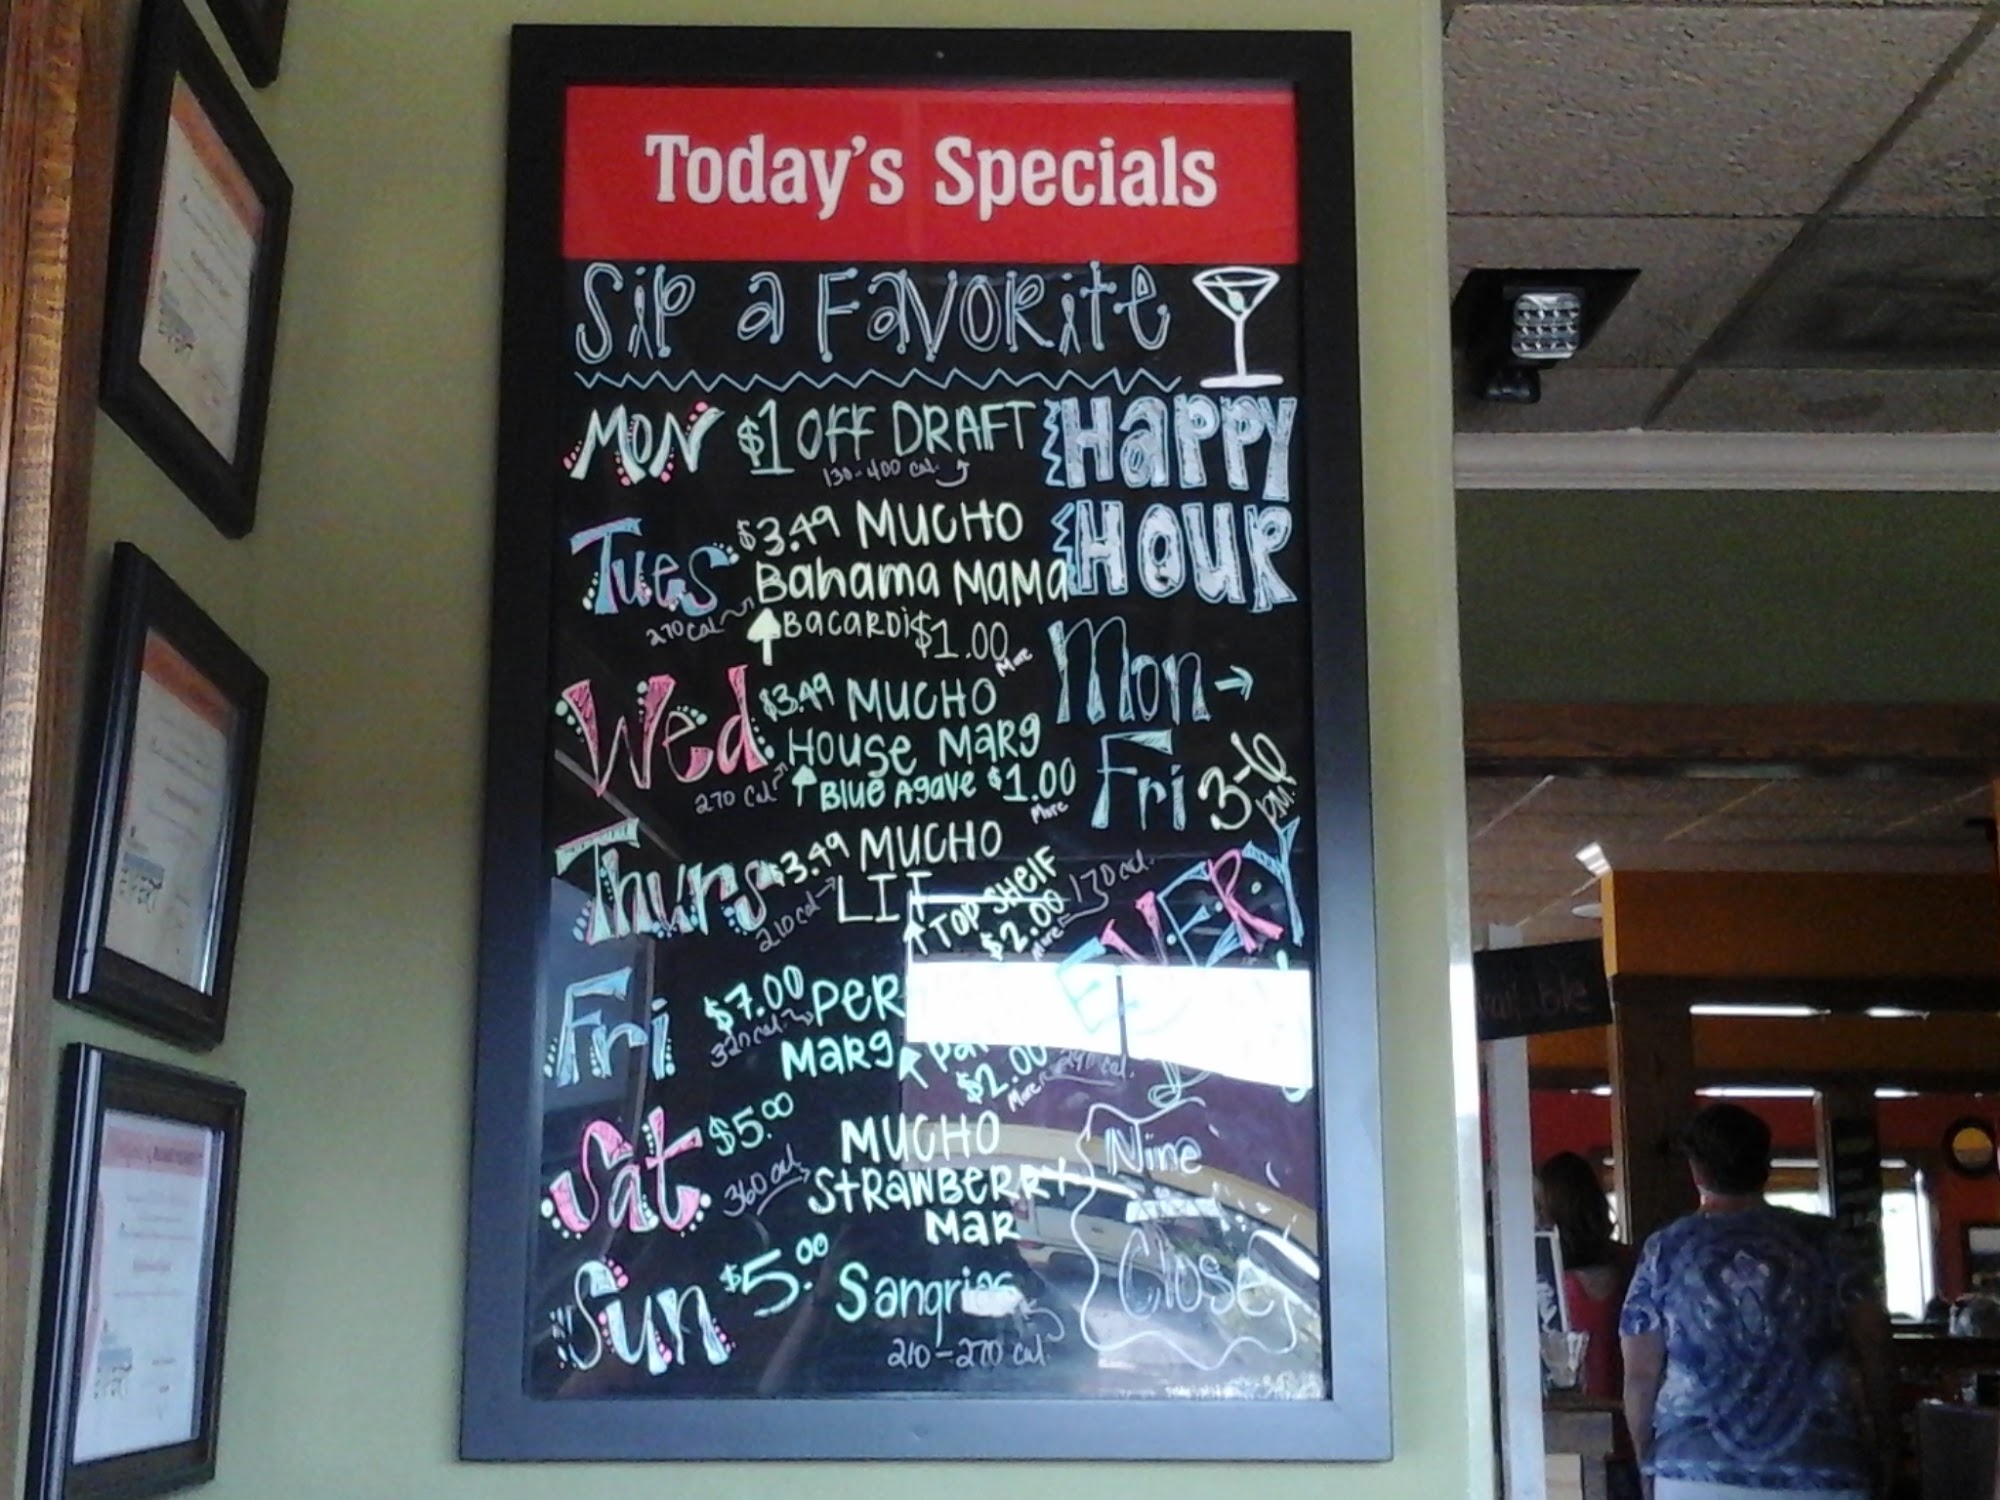 Today's Specials
Sip a Favorite
Mon $1 OFF DRAFT
130-400 cal.
Tues $3.49 MUCHO
Bahama Mama
270 cal
Bacardi $1.00
More
Wed $3.49 MUCHO
House Marg
270 cal
Blue Agave $1.00
More
Thurs $3.49 MUCHO
210 cal LIT
TOP SHELF
$2.00
More
170 cal.
Fri $7.00 PER
320 cal.
Marg
$2.00
More
Sat $5.00 MUCHO
360 cal. STRAWBERRY
MAR
Sun $5.00 Sangrias
210-270 cal.
Happy
Hour
Mon →
Fri 3-6
PM.
EVERY
Nine
Close